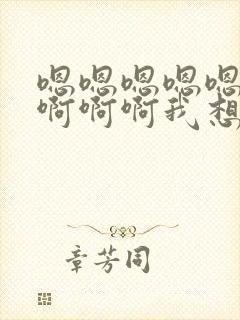 嗯嗯嗯嗯嗯
啊啊啊我想
章芳同